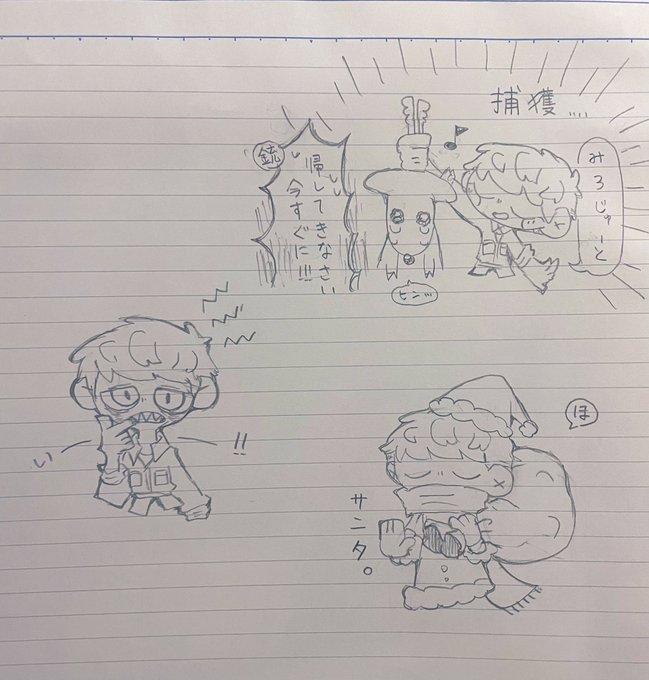 捕獲....
みろじゅーと
銃
帰してきなさい
今すぐに!!!
ヒンッ
い
!!
ほ
サンタ。